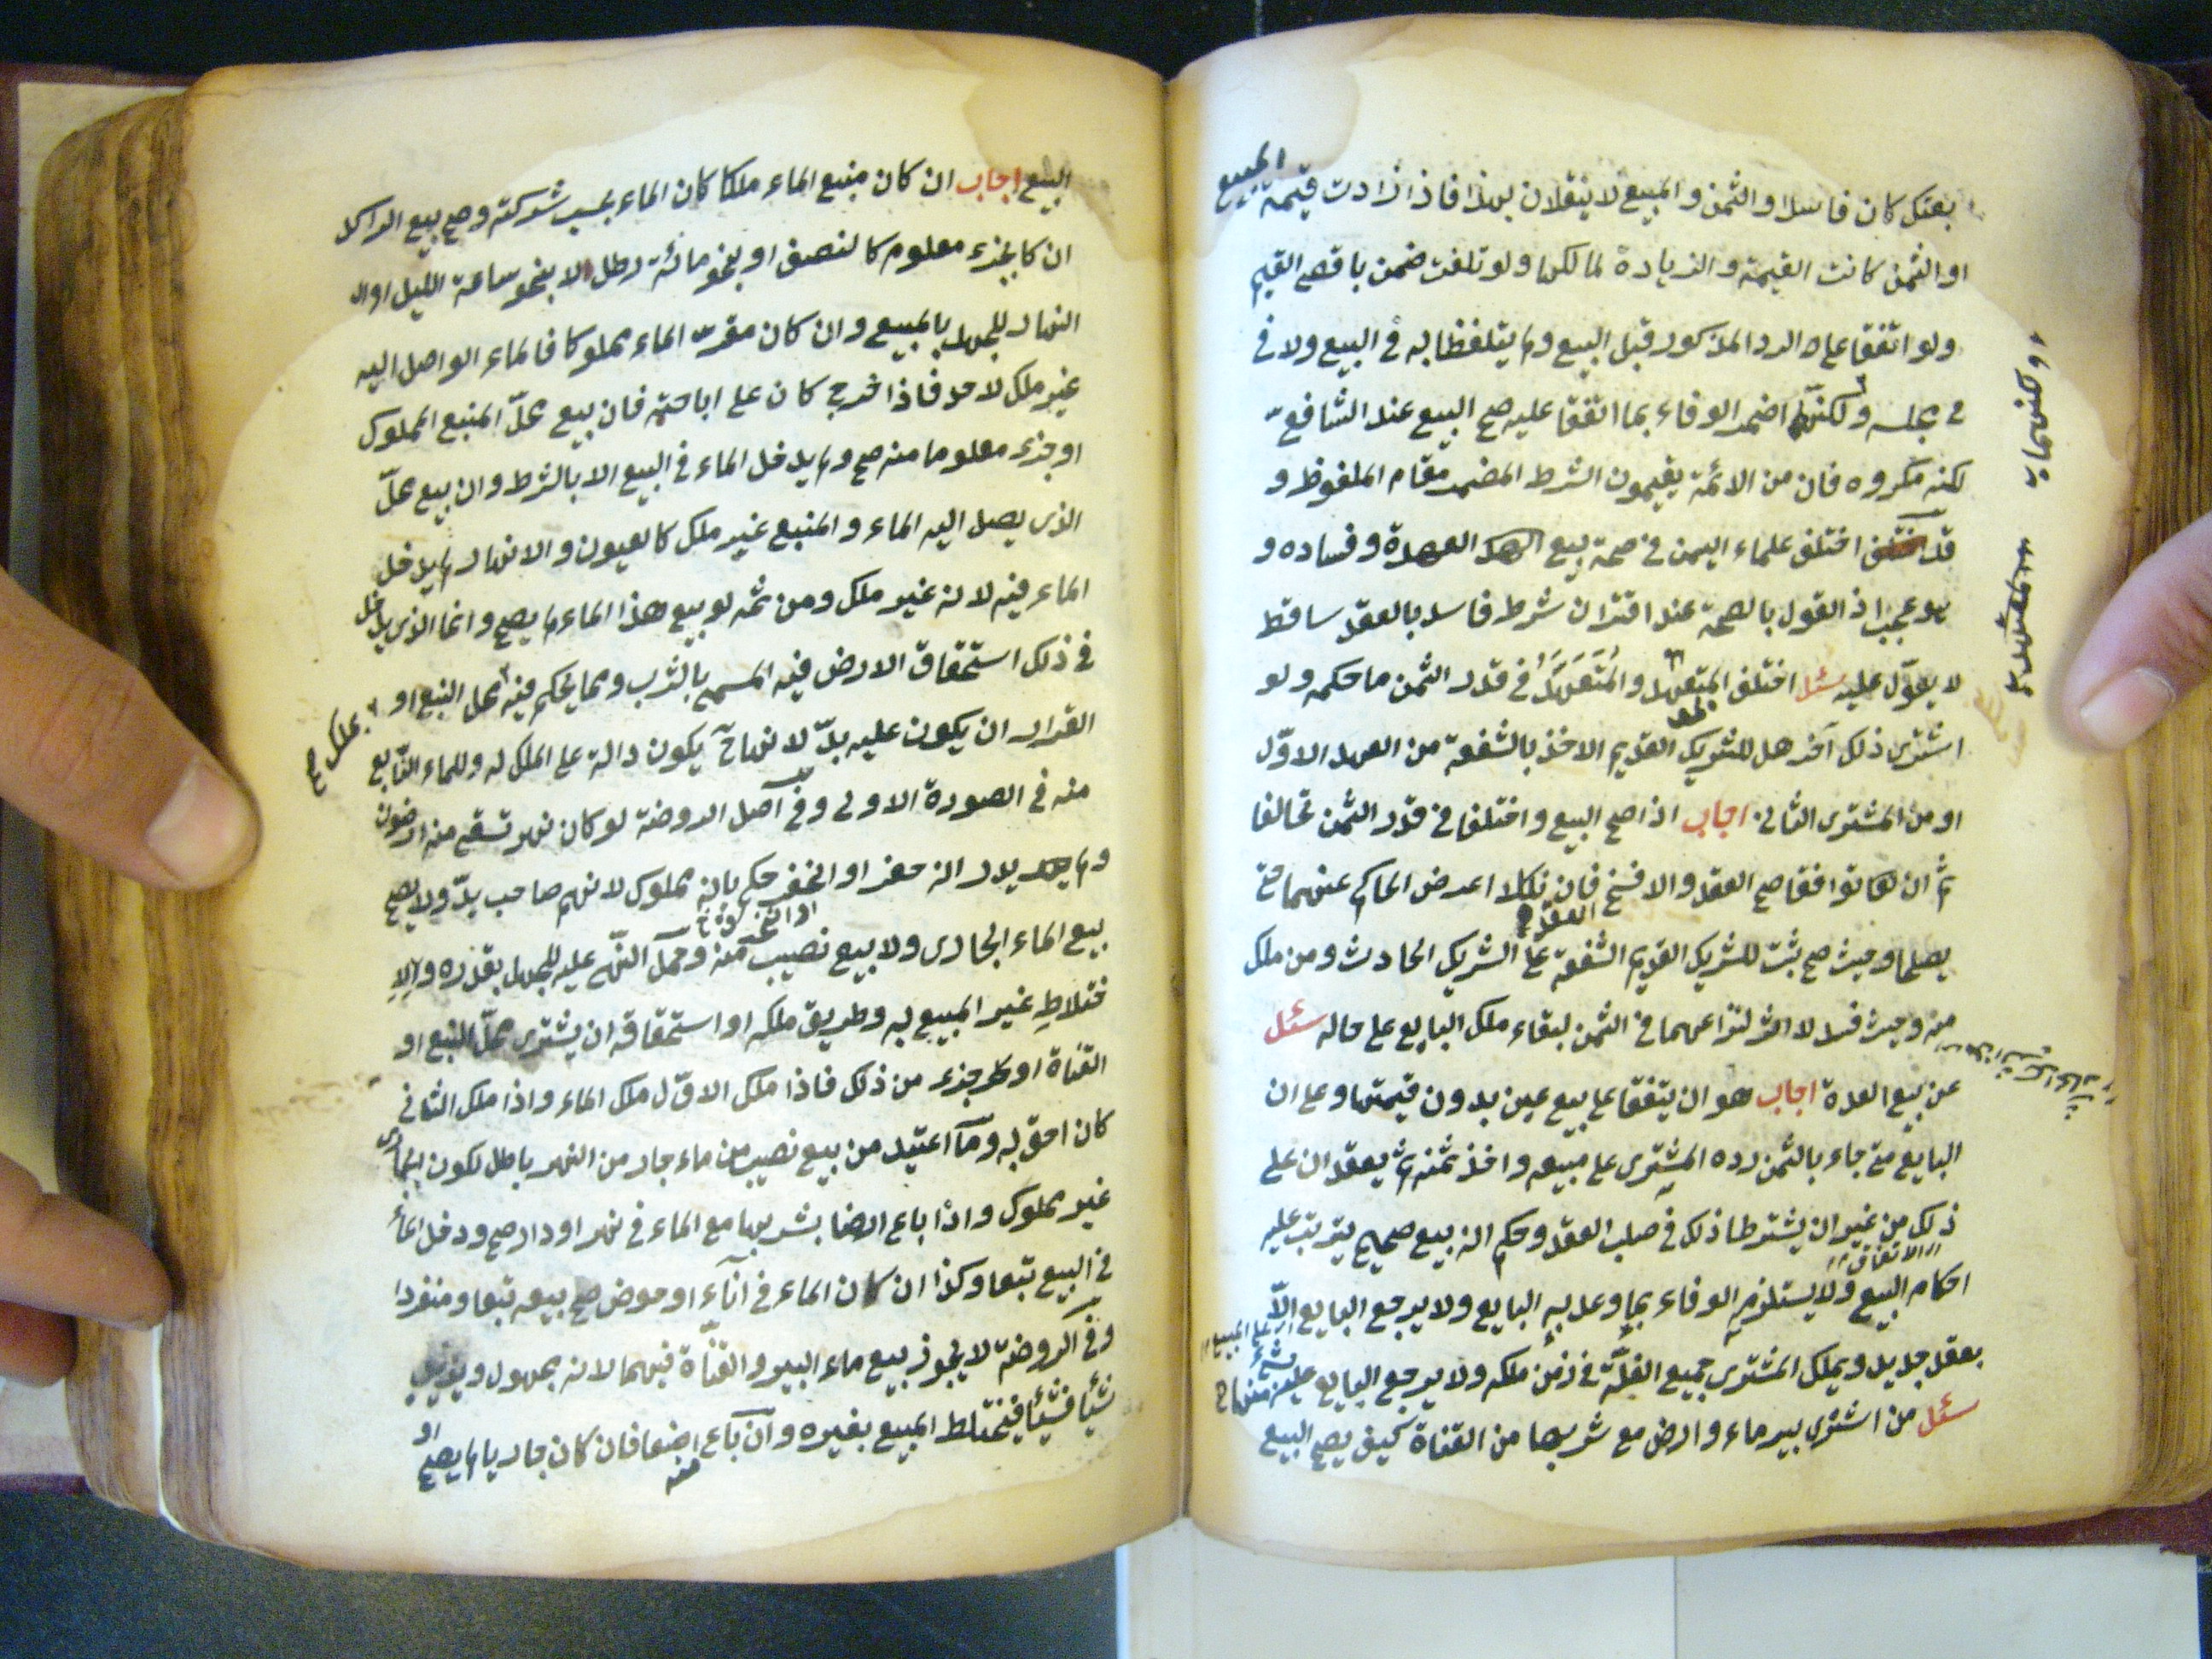 بعتك كان فاسدا والثمن والمبيع لا ينقلان بهذا فاذا زادت قيمة المبيع
او الثمن كانت القيمة والزيادة لمالكها ولو تلفت ضمن باقصى القيم
ولو اتفقا على الرد المذكور قبل البيع ولم يتلفظا به في البيع ولا في
في مجلسه ولكنهما اضمرا الوفاء بما اتفقا عليه صح البيع عند الشافعي
لكنه مكروه فان من الائمة يقيمون الشرط المضمر مقام الملفوظ و
قد اختلف علماء اليمن في صحة بيع العهدة وفساده و
هو عجيب اذ القول بالصحة عند اقتران شرط فاسد بالعقد ساقط
لا يعوّل عليه سئل اختلف المتعهد والمتعهد في قدر الثمن ما حكمه ولو
اشترى ذلك آخر هل للشريك القديم الاخذ بالشفعة من العهد الاوّل
او من المشترى الثاني اجاب اذا صح البيع واختلفا في قدر الثمن تحالفا
ثم ان توافقا صح العقد والا فسخ فان نكلا اعرض الحاكم عنهما حتى
يصطلحا وحيث صح العقد ثبت للشريك القديم الشفعة على الشريك الحادث ومن ملك
منه وحيث فسد لا اثر لنزاعهما في الثمن لبقاء ملك البايع على حاله سئل
عن بيع العدة اجاب هو ان يتفقا على بيع عين بدون قيمتها وعلى ان
البايع متى جاء بالثمن رده المشترى على مبيعه واخذ ثمنه ثم يعقدان على
ذلك من غير ان يشترطا ذلك في صلب العقد وحكم انه بيع صحيح يترتب عليه
احكام البيع ولا يستلزم الاتفاق الوفاء بما وعد به البايع ولا يرجع البايع الا على المبيع
بعقد جديد ويملك المشترى جميع الغلّة في زمن ملكه ولا يرجع البايع عليه بشئ منها
سئل من اشترى بير ماء وارض مع شربها من القناة كيف يصح البيع
البيع اجاب ان كان منبع الماء ملكا كان الماء بحسب شركته وصح بيع الراكد
ان كان بجزء معلوم كالنصف او بنحو مائة رطل لا بنحو ساعة الليل او ال
النهار للجهل بالمبيع وان كان مقرّ الماء مملوكا فالماء الواصل اليه
غير ملك لاحد فاذا خرج كان على اباحته فان بيع محلّ المنبع المملوك
او جزء معلوما منه صح ولم يدخل الماء في البيع الا بالشرط وان بيع محلّ
الذى يصل اليه الماء والمنبع غير ملك كالعيون والانهار لم يدخل
الماء فيه لانه غير ملك ومن ثمه لو بيع هذا الماء لم يصح وانما الذى يدخل
في ذلك استحقاق الارض فيه المسمى بالشرب ومما يحكم فيه بملك محل النبع او
القرار ان يكون عليه يدّ لانها ح يكون دالة على الملك له وللماء النّابع
منه في الصورة الاولى وفي اصل الروضة لو كان نهر تسقى منه ارضون
ولم يدر انه حفر او انخفر حكم بانه مملوك لانهم صاحب يدّ ولا يصح
بيع الماء الجارى ولا بيع نصيب منه وحمل النهي عليه للجهل بقدره ولا
ختلاط غير المبيع به وطريق ملكه او استحقاقه ان يشترى محلّ المنبع او
القناة او جزء من ذلك فاذا ملك الاوّل ملك الماء واذا ملك الثانى
كان احق به وما اعتيد من بيع نصيب من ماء جار من النهر باطل لكون الجارى
غير مملوك واذا باع ارضا بشربها مع الماء في نهر او دار صح ودخل الماء
في البيع تبعا وكذا ان كان الماء في آناء او حوض صح بيعه تبعا ومنفردا
وفي الروضة لا يجوز بيع ماء البير والقناة فيهما لانه مجهول ويزيد
شيأ فشيأ فيختلط المبيع بغيره وان باع منه اضعافا فان كان جاريا لم يصح او